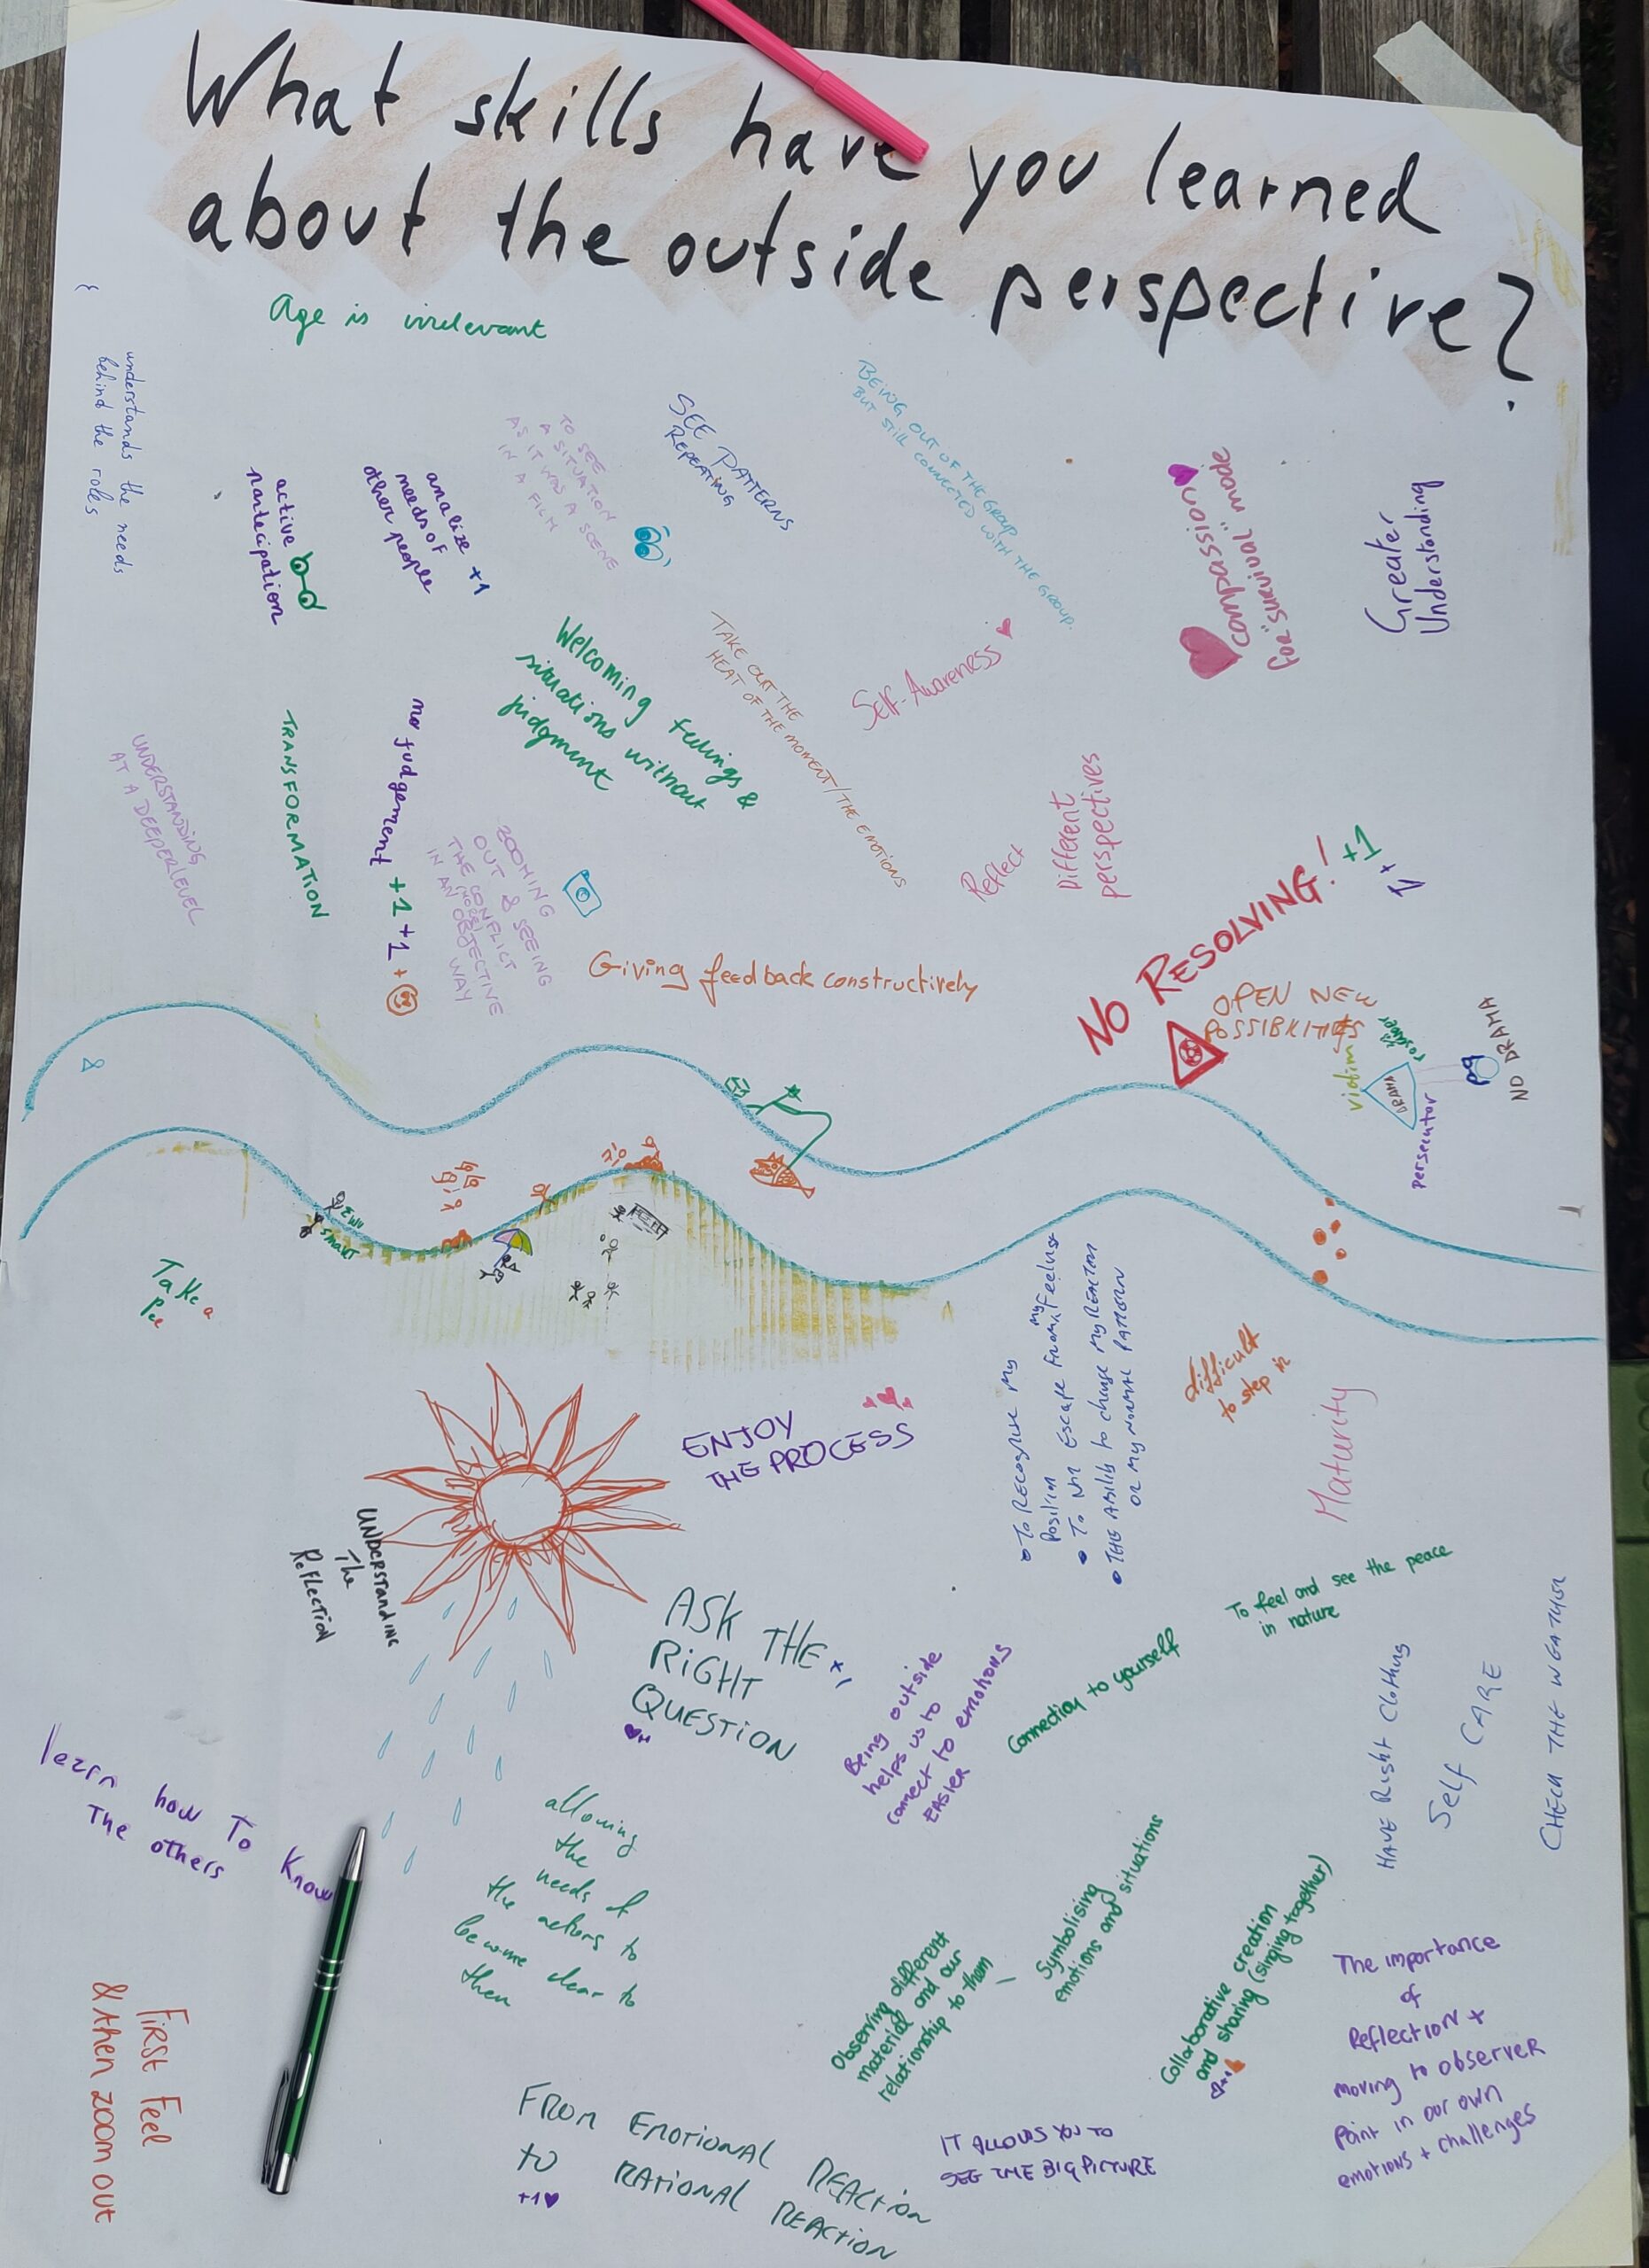 What skills have you learned
about the outside perspective?
Age is irrelevant
understands the needs
behind the roles
active
partecipation
analize +1
needs of
other people
TO SEE
A SITUATION
AS IT WAS A SCENE
IN A FILM
SEE PATTERNS
REPEATING
BEING OUT OF THE GROUP
BUT STILL CONNECTED WITH THE GROUP.
compassion
for "survival" mode
Greater
Understanding
Welcoming feelings &
situations without
judgment
TAKE OUT THE
HEAT OF THE MOMENT/THE EMOTIONS
Self-Awareness
UNDERSTANDING
AT A DEEPER LEVEL
TRANSFORMATION
no judgement +1 +1 +
ZOOMING
OUT & SEEING
THE CONFLICT
IN AN OBJECTIVE
WAY
Reflect
Different
perspectives
Giving feedback constructively
NO RESOLVING! +1
+1
OPEN NEW
POSSIBILITIES
victim
DRAMA
persecutor
NO DRAMA
&
smart
Take a
Pee
ENJOY
THE PROCESS
• To Recognise my
Position
• To Not Escape From my Feelings
• THE Ability to change my REACTION
OR My NORMAL PATTERN
difficult
to step in
Maturity
UNDERSTANDING
The
REFLECTION
ASK THE +1
RIGHT
QUESTION
Being outside
helps us to
connect to emotions
EASIER
Connection to yourself
To feel and see the peace
is nature
HAVE Right Clothing
Self CARE
CHECK THE WEATHER
learn how To Know
The others
allowing
the
needs of
the actors to
become clear to
them
Observing different
material and our
relationship to them —
Symbolising
emotions and situations
Collaborative creation
and sharing (singing together)
The importance
of
Reflection +
moving to observer
Point in our own
emotions + challenges
First Feel
& then zoom out
FROM EMOTIONAL REACTION
to RATIONAL REACTION
+1
IT ALLOWS YOU TO
SEE THE BIG PICTURE